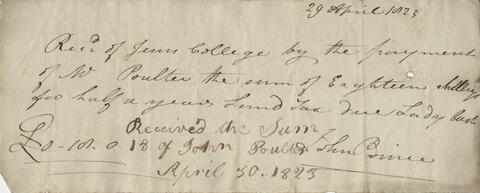 29 April 1823
Recd of Jesus College by the payment
of Mr Poulter the sum of Eighteen shillings
for half a years Land Tax due Lady last
Received the Sum
£0-18.0 18 of John Poulter John Prince
April 30. 1823